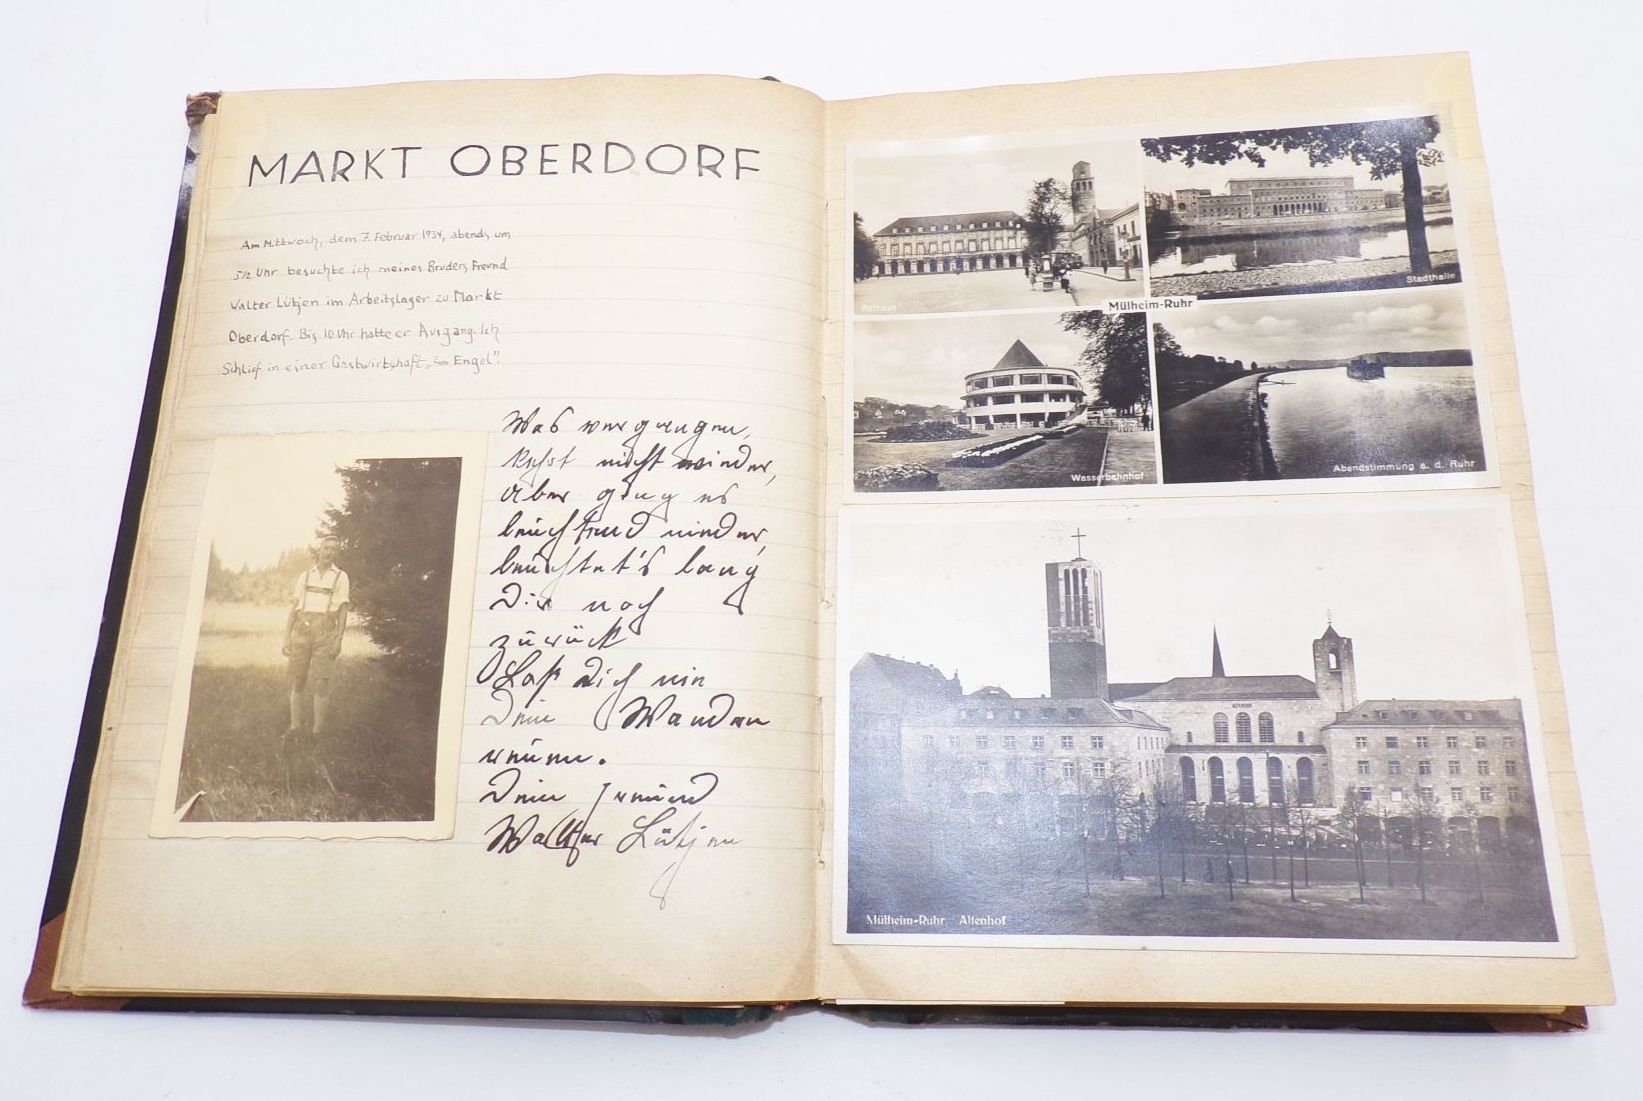 MARKT OBERDORF
Am Mittwoch, dem 7. Februar 1934, abends, um
5½ Uhr besuchte ich meines Bruders Freund
Walter Lütjen im Arbeitslager zu Markt
Oberdorf. Bis 10 Uhr hatte er Ausgang. Ich
Schlief in einer Gastwirtschaft „Zum Engel".
Was vergangen,
kehrt nicht wieder,
Aber ging es
leuchtend nieder,
leuchtet's lang
Dir noch
zurück
Laß dich
Dein Wandern
Dein Freund
Walter Lütjen
Rathaus
Stadthalle
Mülheim-Ruhr
Wasserbahnhof
Abendstimmung a. d. Ruhr
Mülheim-Ruhr Altenhof